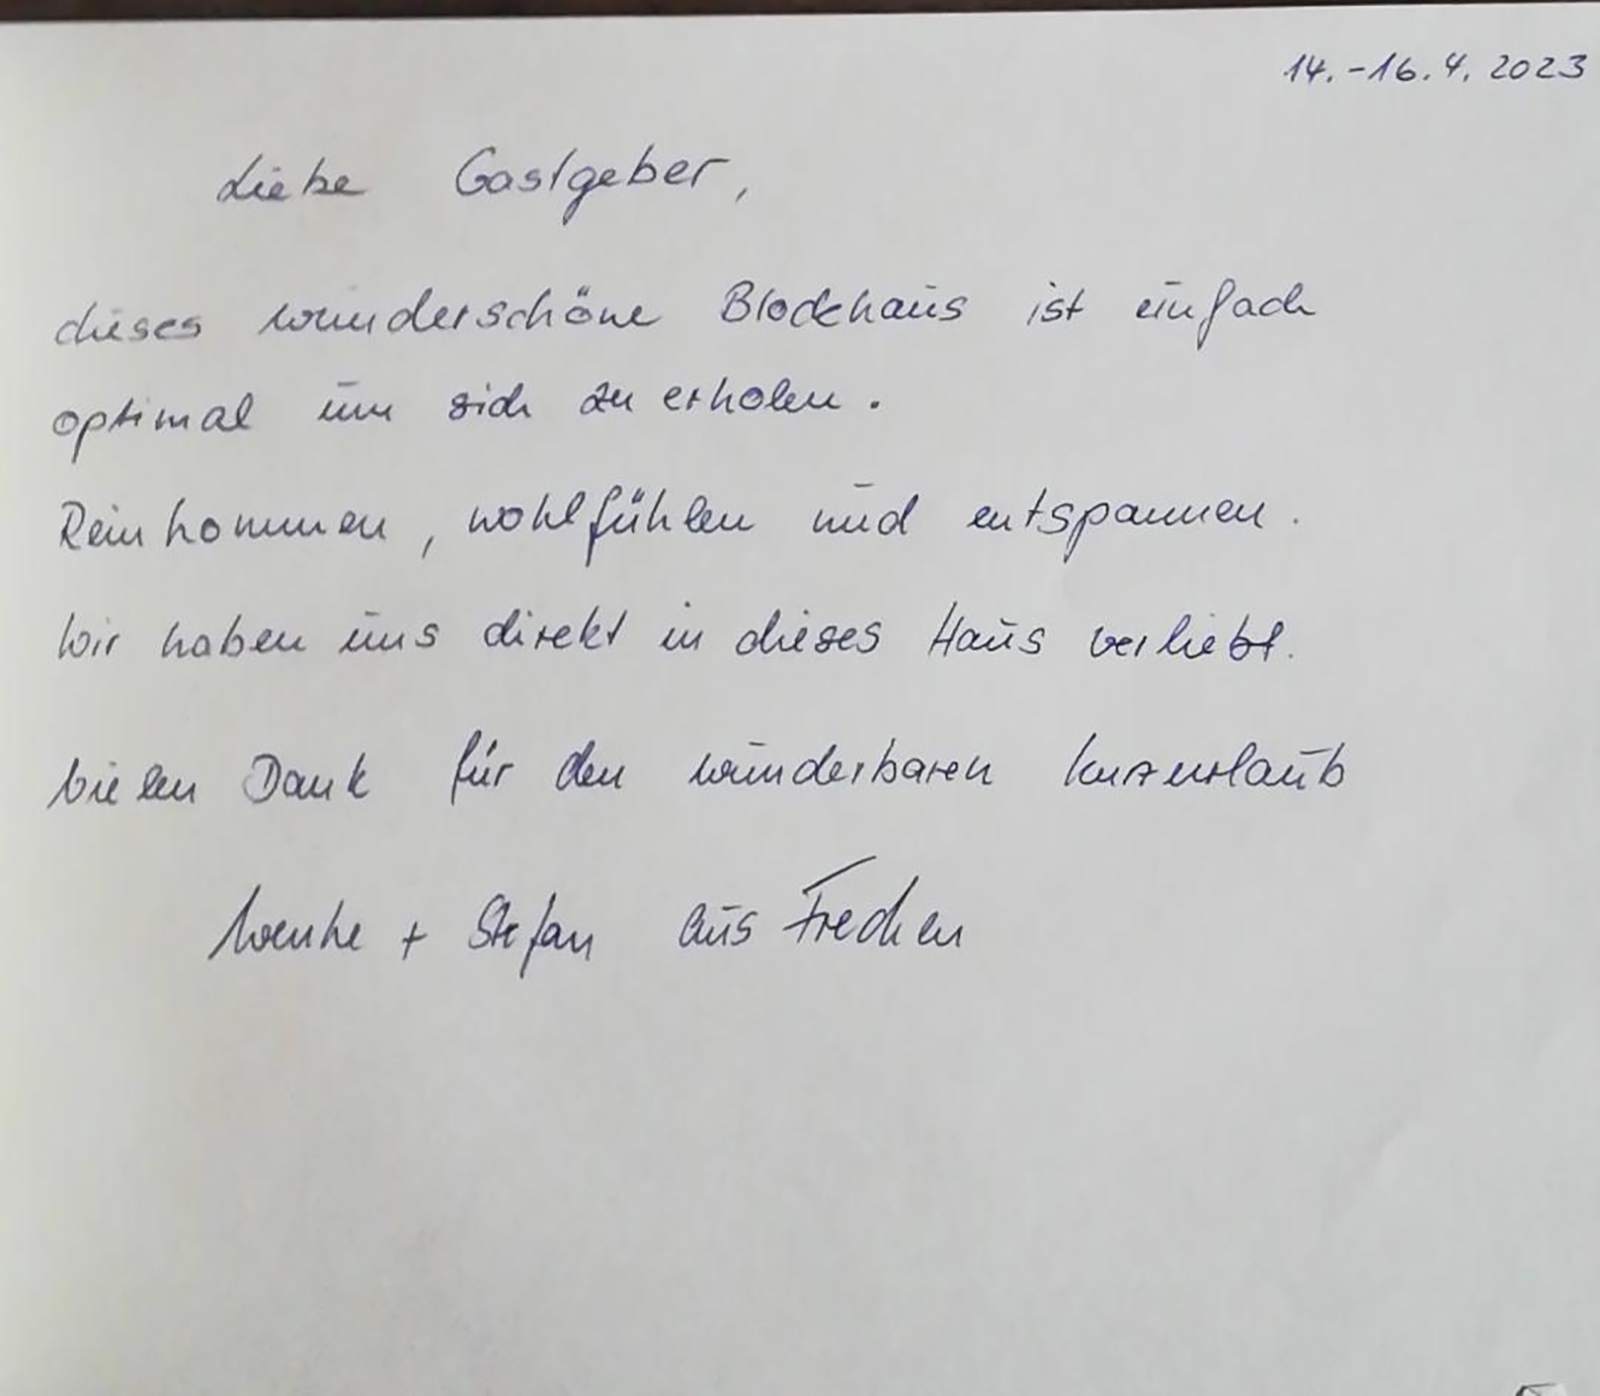 14.-16.4.2023
Liebe Gastgeber,
dieses wunderschöne Blockhaus ist einfach
optimal um sich zu erholen.
Reinkommen, wohlfühlen und entspannen.
Wir haben uns direkt in dieses Haus verliebt.
Vielen Dank für den wunderbaren Kurzurlaub
Wenke + Stefan aus Frechen